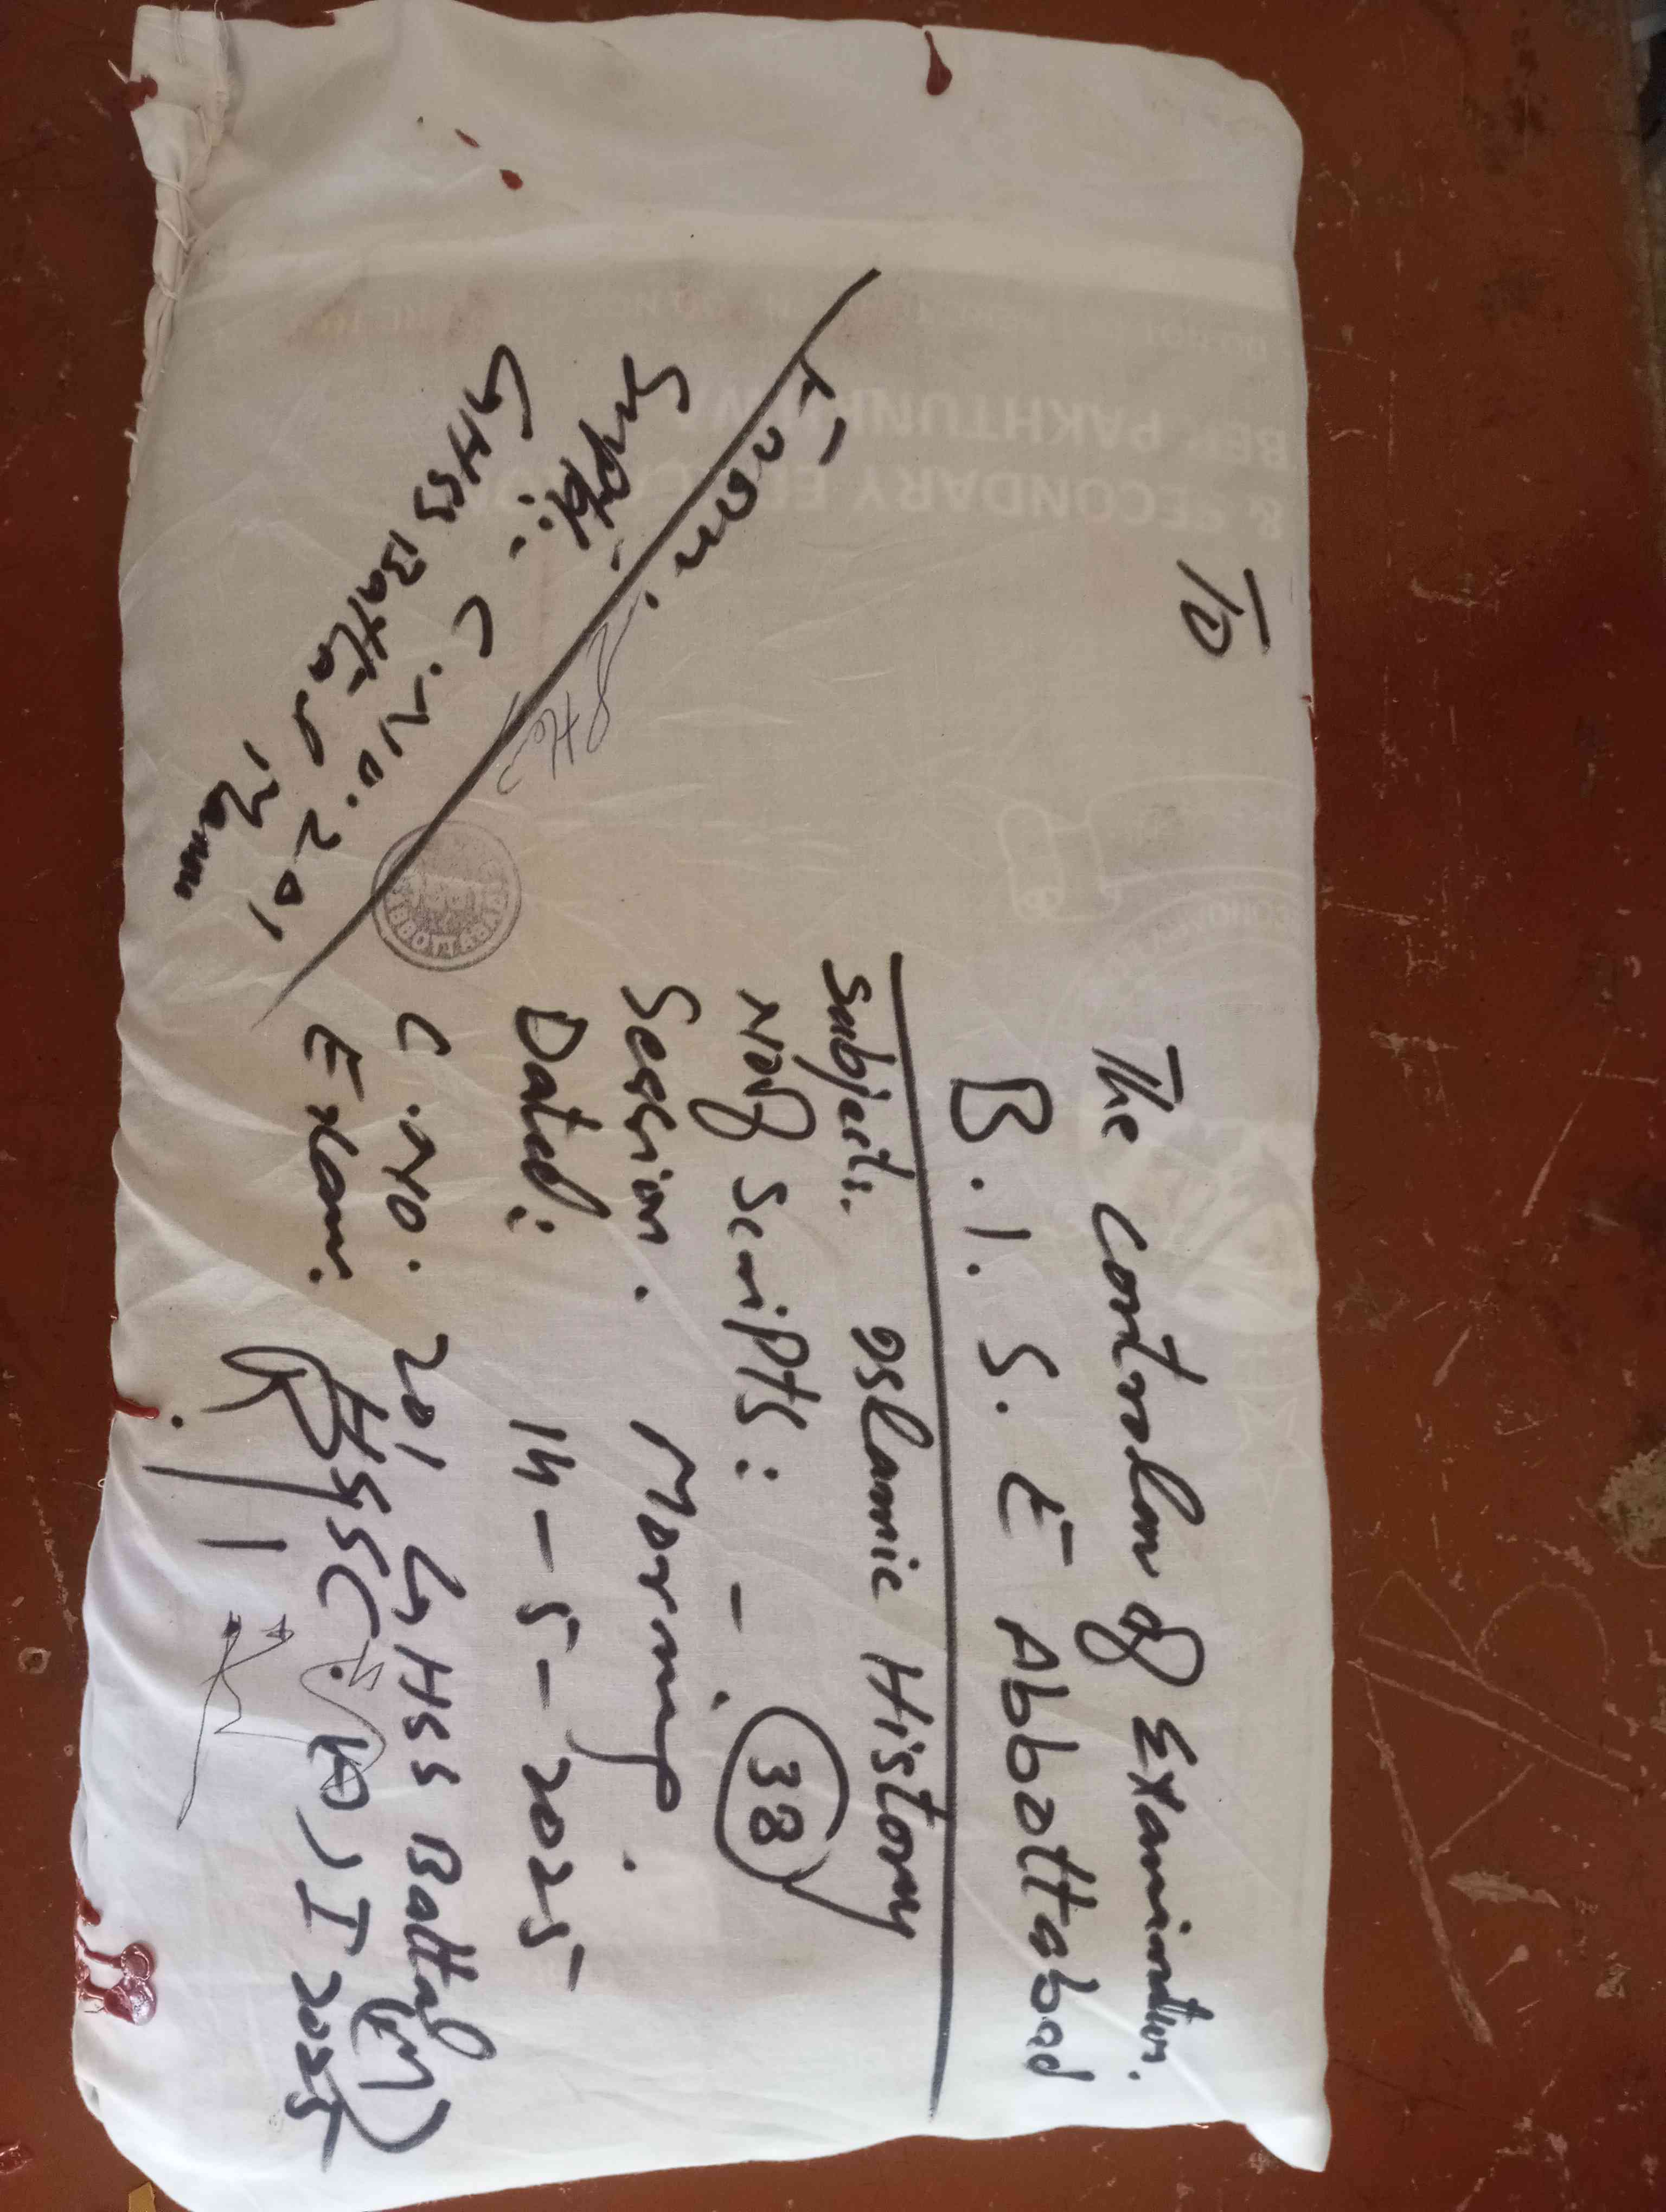 To
The Controler of Examination.
B.I.S.E Abbottabad
Subject:. Islamic History
No of Scripts: - 38
Session. Morning.
Dated: 14-5-2025
C.No. 201 GHSS Battal (M)
Exam. HSSC (A) I 2025
From.
Supdt:.
C.No. 201
GHSS Battal
& SECONDARY
BER PAKHTUNKHWA
ABBOTTABAD